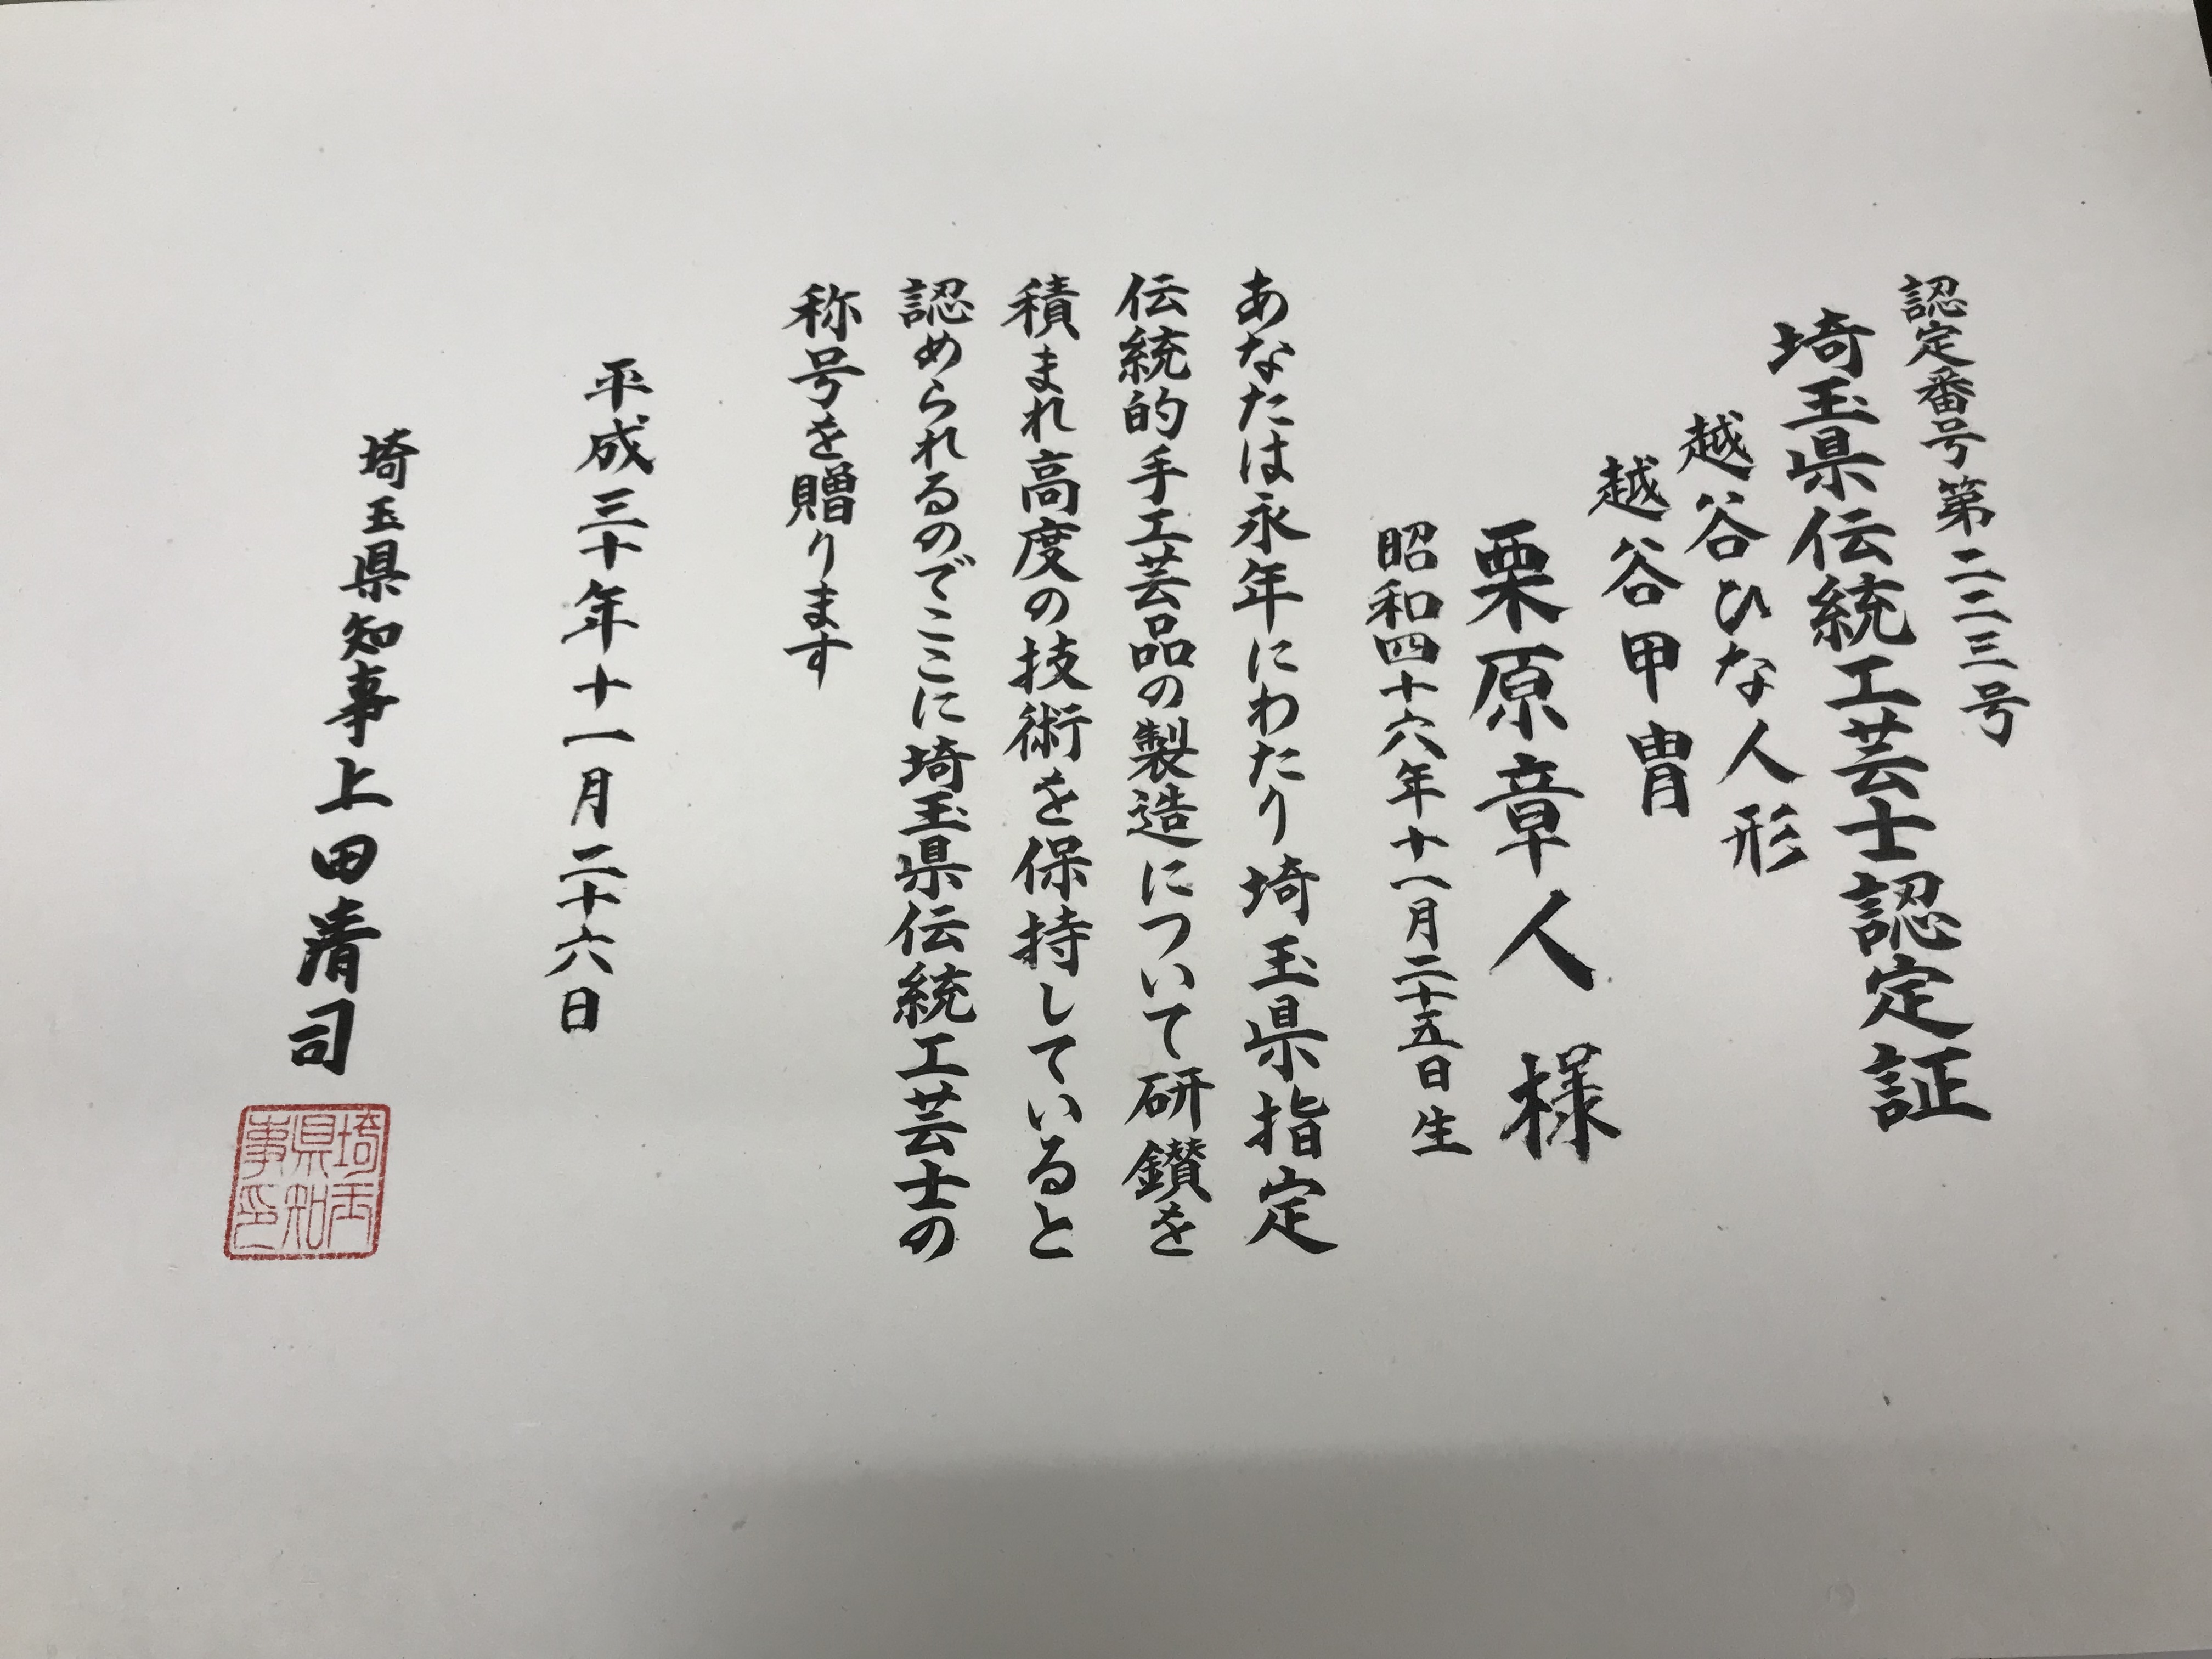 認定番号第二二三号
埼玉県伝統工芸士認定証
越谷ひな人形
越谷甲冑
栗原章人 様
昭和四十六年十一月二十五日生
あなたは永年にわたり埼玉県指定
伝統的手工芸品の製造について研鑽を
積まれ高度の技術を保持していると
認められるのでここに埼玉県伝統工芸士の
称号を贈ります
平成三十年十一月二十六日
埼玉県知事 上田清司
埼玉県知事印